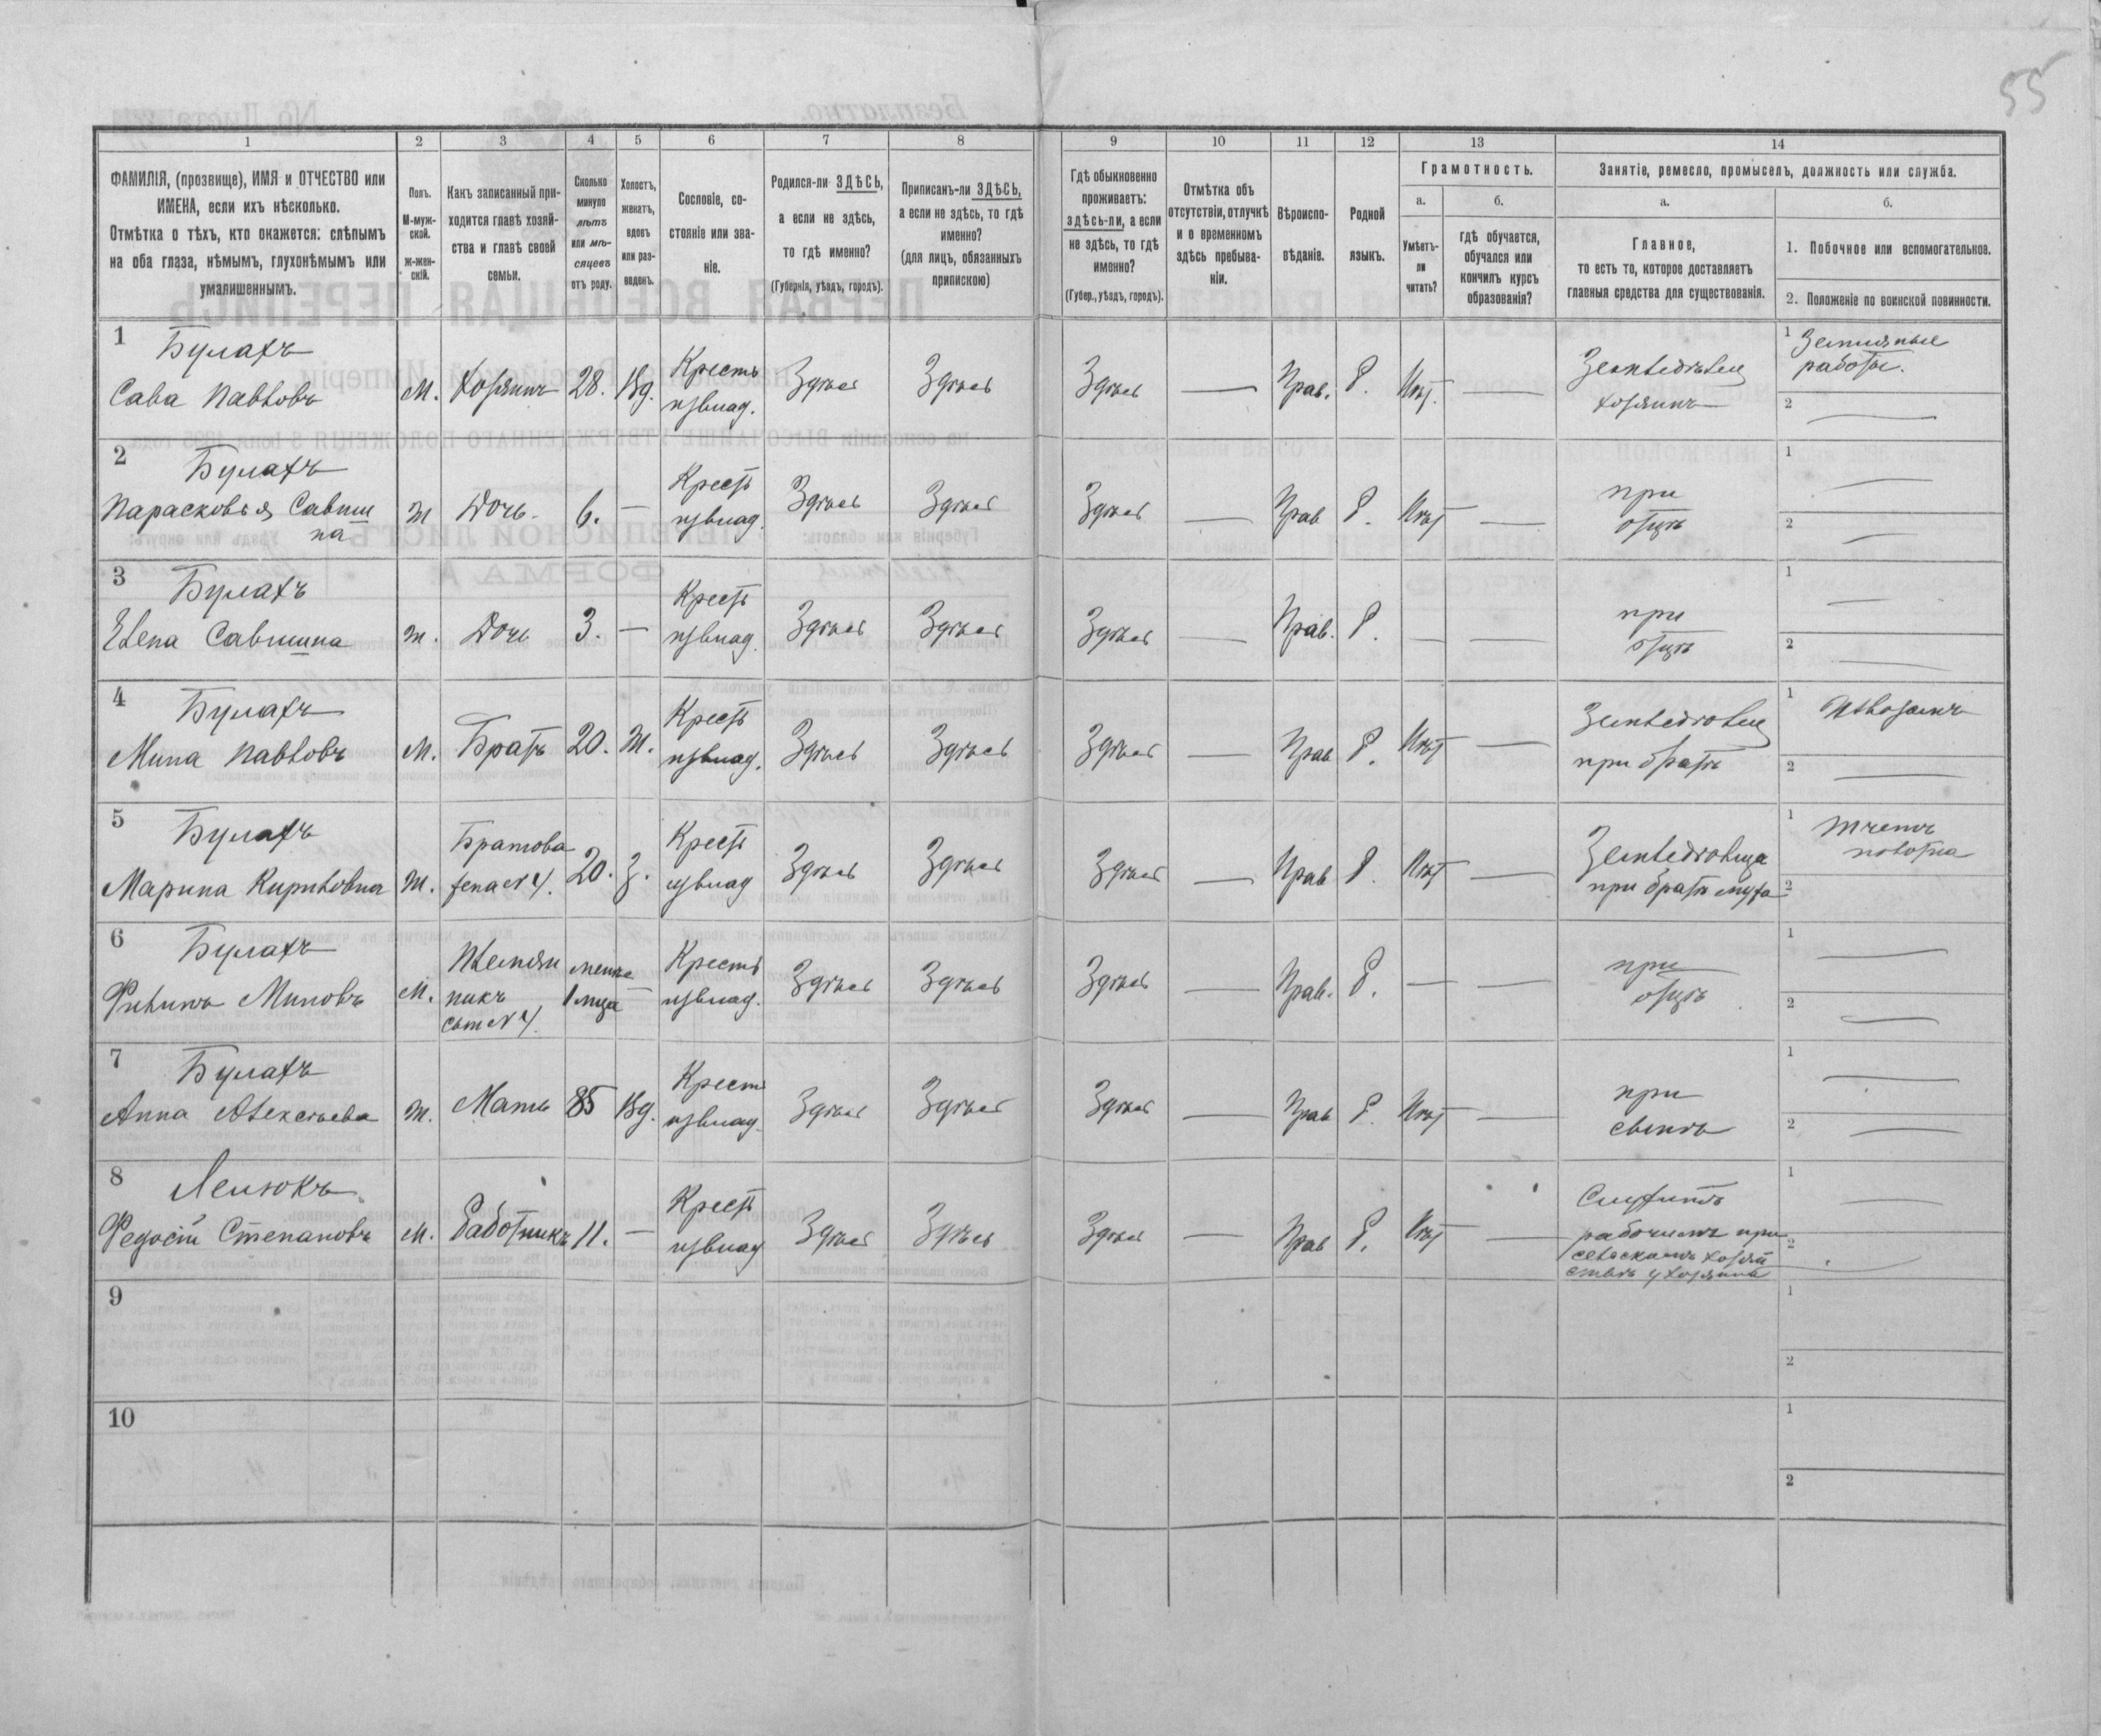 55
1 2 3 4 5 6 7 8 9 10 11 12 13 14
ФАМИЛІЯ, (прозвище), ИМЯ и ОТЧЕСТВО или
ИМЕНА, если ихъ нѣсколько.
Отмѣтка о тѣхъ, кто окажется: слѣпымъ
на оба глаза, нѣмымъ, глухонѣмымъ или
умалишеннымъ.
Полъ.
М-муж-
ской.
Ж-жен-
скій.
Какъ записанный при-
ходится главѣ хозяй-
ства и главѣ своей
семьи.
Сколько
минуло
лѣтъ
или мѣ-
сяцевъ
отъ роду.
Холостъ,
женатъ,
вдовъ
или раз-
веденъ.
Сословіе, со-
стояніе или зва-
ніе.
Родился-ли ЗДѢСЬ,
а если не здѣсь,
то гдѣ именно?
(Губернія, уѣздъ, городъ).
Приписанъ-ли ЗДѢСЬ,
а если не здѣсь, то гдѣ
именно?
(для лицъ, обязанныхъ
припискою)
Гдѣ обыкновенно
проживаетъ:
здѣсь-ли, а если
не здѣсь, то гдѣ
именно?
(Губер., уѣздъ, городъ).
Отмѣтка объ
отсутствіи, отлучкѣ
и о временномъ
здѣсь пребыва-
ніи.
Вѣроиспо-
вѣданіе.
Родной
языкъ.
Грамотность.
а.
Умѣетъ-
ли
читать?
б.
гдѣ обучается,
обучался или
кончилъ курсъ
образованія?
Занятіе, ремесло, промыселъ, должность или служба.
а.
Главное,
то есть то, которое доставляетъ
главныя средства для существованія.
б.
1. Побочное или вспомогательное.
2. Положеніе по воинской повинности.
1 Булахъ
Сава Павловъ М. Хозяинъ 28. Вд. Кресть извлад. Здѣсь Здѣсь Здѣсь — Прав. Р. Нѣт. — Земледѣлец хозяинъ 1 Земляные работы. 2 —
2 Булахъ
Парасковья Савши
на Ж Дочь. 6. — Крест извлад. Здѣсь Здѣсь Здѣсь — Прав Р. Нѣт — при отцѣ 1 — 2 —
3 Булахъ
Елена Савшина ж. Дочь 3. — Крест извлад. Здѣсь Здѣсь Здѣсь — Прав. Р. — — при отцѣ 1 — 2 —
4 Булахъ
Мина Павловъ М. Братъ 20. Ж. Крест извлад. Здѣсь Здѣсь Здѣсь — Прав Р. Нѣт — при братѣ 1 2 —
5 Булахъ
Марина Кириловна Ж. Братова жена №4. 20. З. Крест извлад Здѣсь Здѣсь Здѣсь — Прав Р. Нѣт — при братѣ мужа 1 2
6 Булахъ
Филипъ Миновъ М. Племян никъ сын №4. менѣе 1 мца — Кресть извлад. Здѣсь Здѣсь Здѣсь — Прав. Р. — — при отцѣ 1 — 2 —
7 Булахъ
Анна Алексѣева ж. Мать 85 Вд. Крест извлад. Здѣсь Здѣсь Здѣсь — Прав Р. Нѣт — при сынѣ 1 — 2 —
8
Федосій Степановъ М. Работникъ 11. — Крест извлад Здѣсь Здѣсь Здѣсь — Прав Р. Нѣт — Служитъ рабочимъ при сельскомъ хозяй ствѣ у хозяина 1 — 2 —
9 1 2
10 1 2